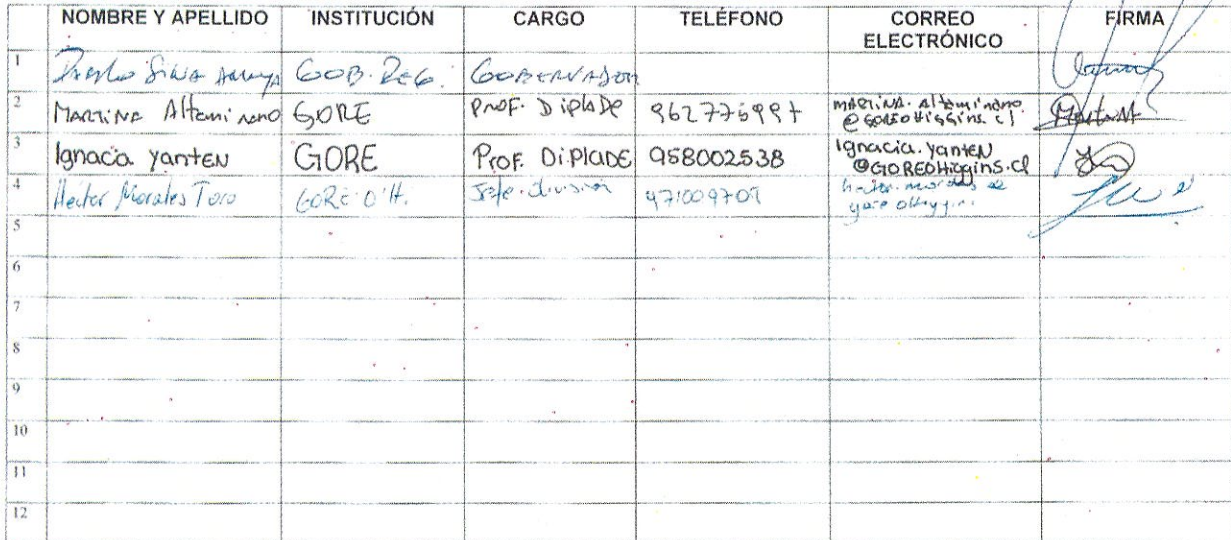 NOMBRE Y APELLIDO INSTITUCIÓN CARGO TELÉFONO CORREO ELECTRÓNICO FIRMA
1 Pablo Silva Amaya GOB. REG. GOBERNADOR
2 MARTINA Altamirano GORE PROF. DIPLADE 962775997 MARTINA.Altamirano @GOREOHiggins.cl
3 Ignacia Yanten GORE Prof. DiPLADE 958002538 Ignacia.Yanten @GOREOHiggins.cl
4 Hector Morales Toro GORE O'H. Jefe división 971009709
5
6
7
8
9
10
11
12